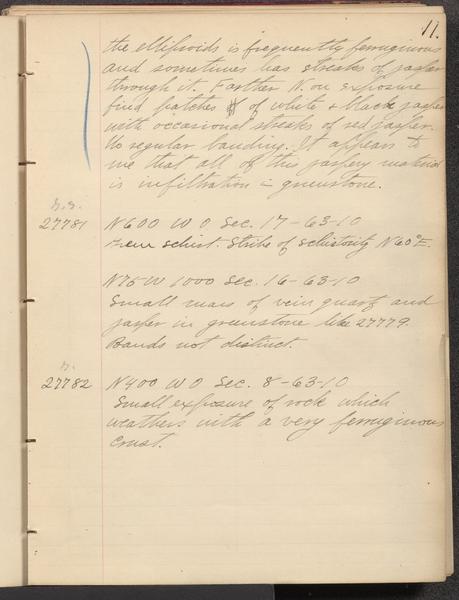 11.
the ellipsoids is frequently ferruginous
and sometimes has streaks of jasper
through it. Farther N. on exposure
find patches of white & black jasper
with occasional streaks of red jasper.
No regular banding. It appears to
me that all of this jaspery material
is infiltration in greenstone.
G.S.
27781 N600 W 0 Sec. 17-63-10
Green schist. Strike of schistosity N60°E.
N75 W 1000 Sec. 16-63-10
Small mass of vein quartz and
jasper in greenstone like 27779.
Bands not distinct.
27782 N400 W 0 Sec. 8-63-10
Small exposure of rock which
weathers with a very ferruginous
crust.